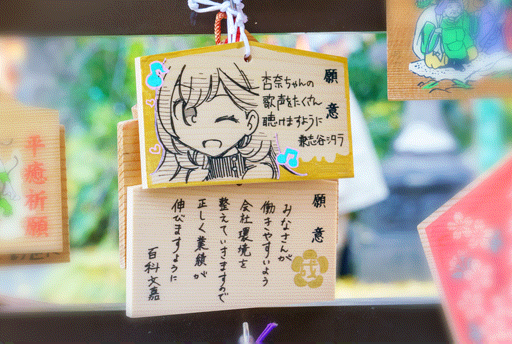 願意
杏奈ちゃんの
歌声をたくさん
聴けますように
願意
みなさんが
働きやすいよう
会社環境を
整えていきますので
正しく業績が
伸びますように
百科文嘉
平癒祈願